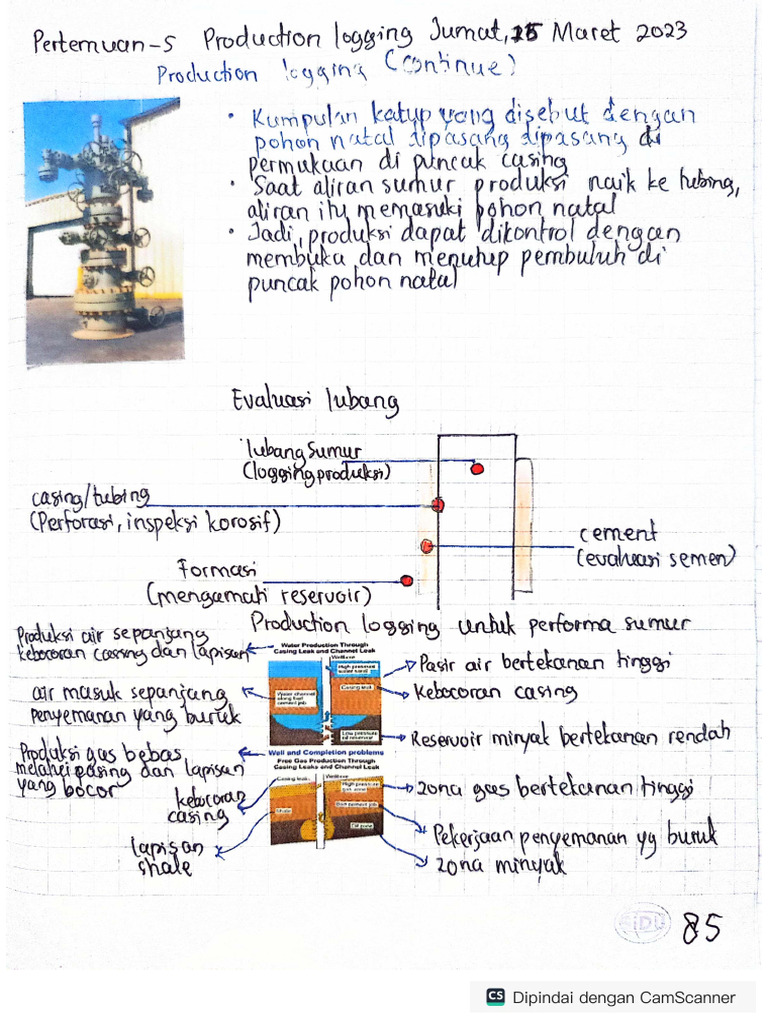 Pertemuan-5 Production logging Jumat, 25 Maret 2023
Production logging (Continue)
• Kumpulan katup yang disebut dengan
pohon natal dipasang dipasang di
permukaan di puncak casing
• Saat aliran sumur produksi naik ke tubing,
aliran itu memasuki pohon natal
• Jadi, produksi dapat dikontrol dengan
membuka dan menutup pembuluh di
puncak pohon natal
Evaluasi lubang
lubang sumur
(logging produksi)
casing/tubing
(Perforasi, inspeksi korosif)
cement
(evaluasi semen)
Formasi
(mengamati reservoir)
Production logging untuk performa sumur
Produksi air sepanjang
kebocoran cassing dan lapisan
air masuk sepanjang
penyemanan yang buruk
Water Production Through
Casing Leak and Channel Leak
Wellbore
High pressure
water sand
Casing leak
Water channel
along bad
cement job
Low pressure
oil reservoir
Pasir air bertekanan tinggi
Kebocoran casing
Reservoir minyak bertekanan rendah
Produksi gas bebas
melalui casing dan lapisan
yang bocor
kebocoran
casing
lapisan
shale
Well and Completion problems
Free Gas Production Through
Casing Leaks and Channel Leak
Casing leak
Wellbore
High pressure
gas zone
Shale
Bad cement job
Oil zone
zona gas bertekanan tinggi
Pekerjaan penyemanan yg buruk
zona minyak
85
CS Dipindai dengan CamScanner